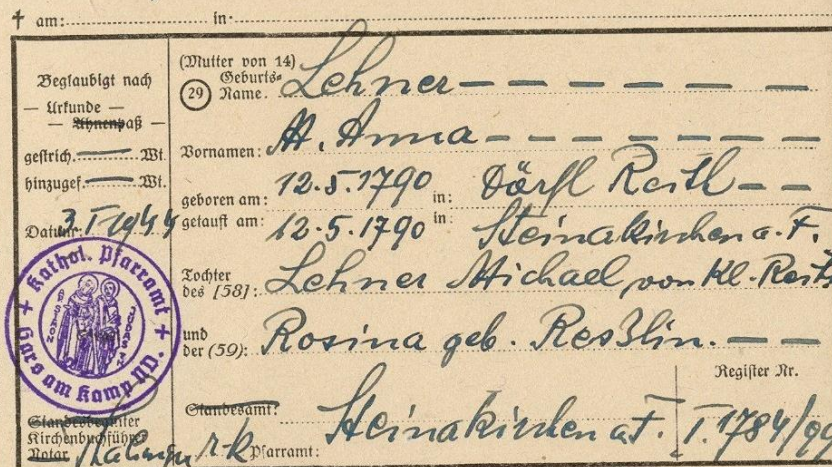 † am: in:
Beglaubigt nach
— Urkunde —
— Ahnenpaß —
gestrich. — Wt.
hinzugef. — Wt.
Datum: 3. I. 1944
+ Kathol. Pfarramt + Gars am Kamp ND.
S. SIMON JUDAS THAD
Standesbeamter
Kirchenbuchführer
Notar
(Mutter von 14)
(29) Geburts-Name: Lehner — — — — — —
Vornamen: M. Anna — — — — — — —
geboren am: 12.5.1790 in: Dörfl Reith — —
getauft am: 12.5.1790 in: Steinakirchen a. F.
Tochter des [58]: Lehner Michael von Kl. Reith
und der (59): Rosina geb. Reßlin. — —
Register Nr.
Standesamt:
r-k Pfarramt: Steinakirchen a F. I. 1784/99